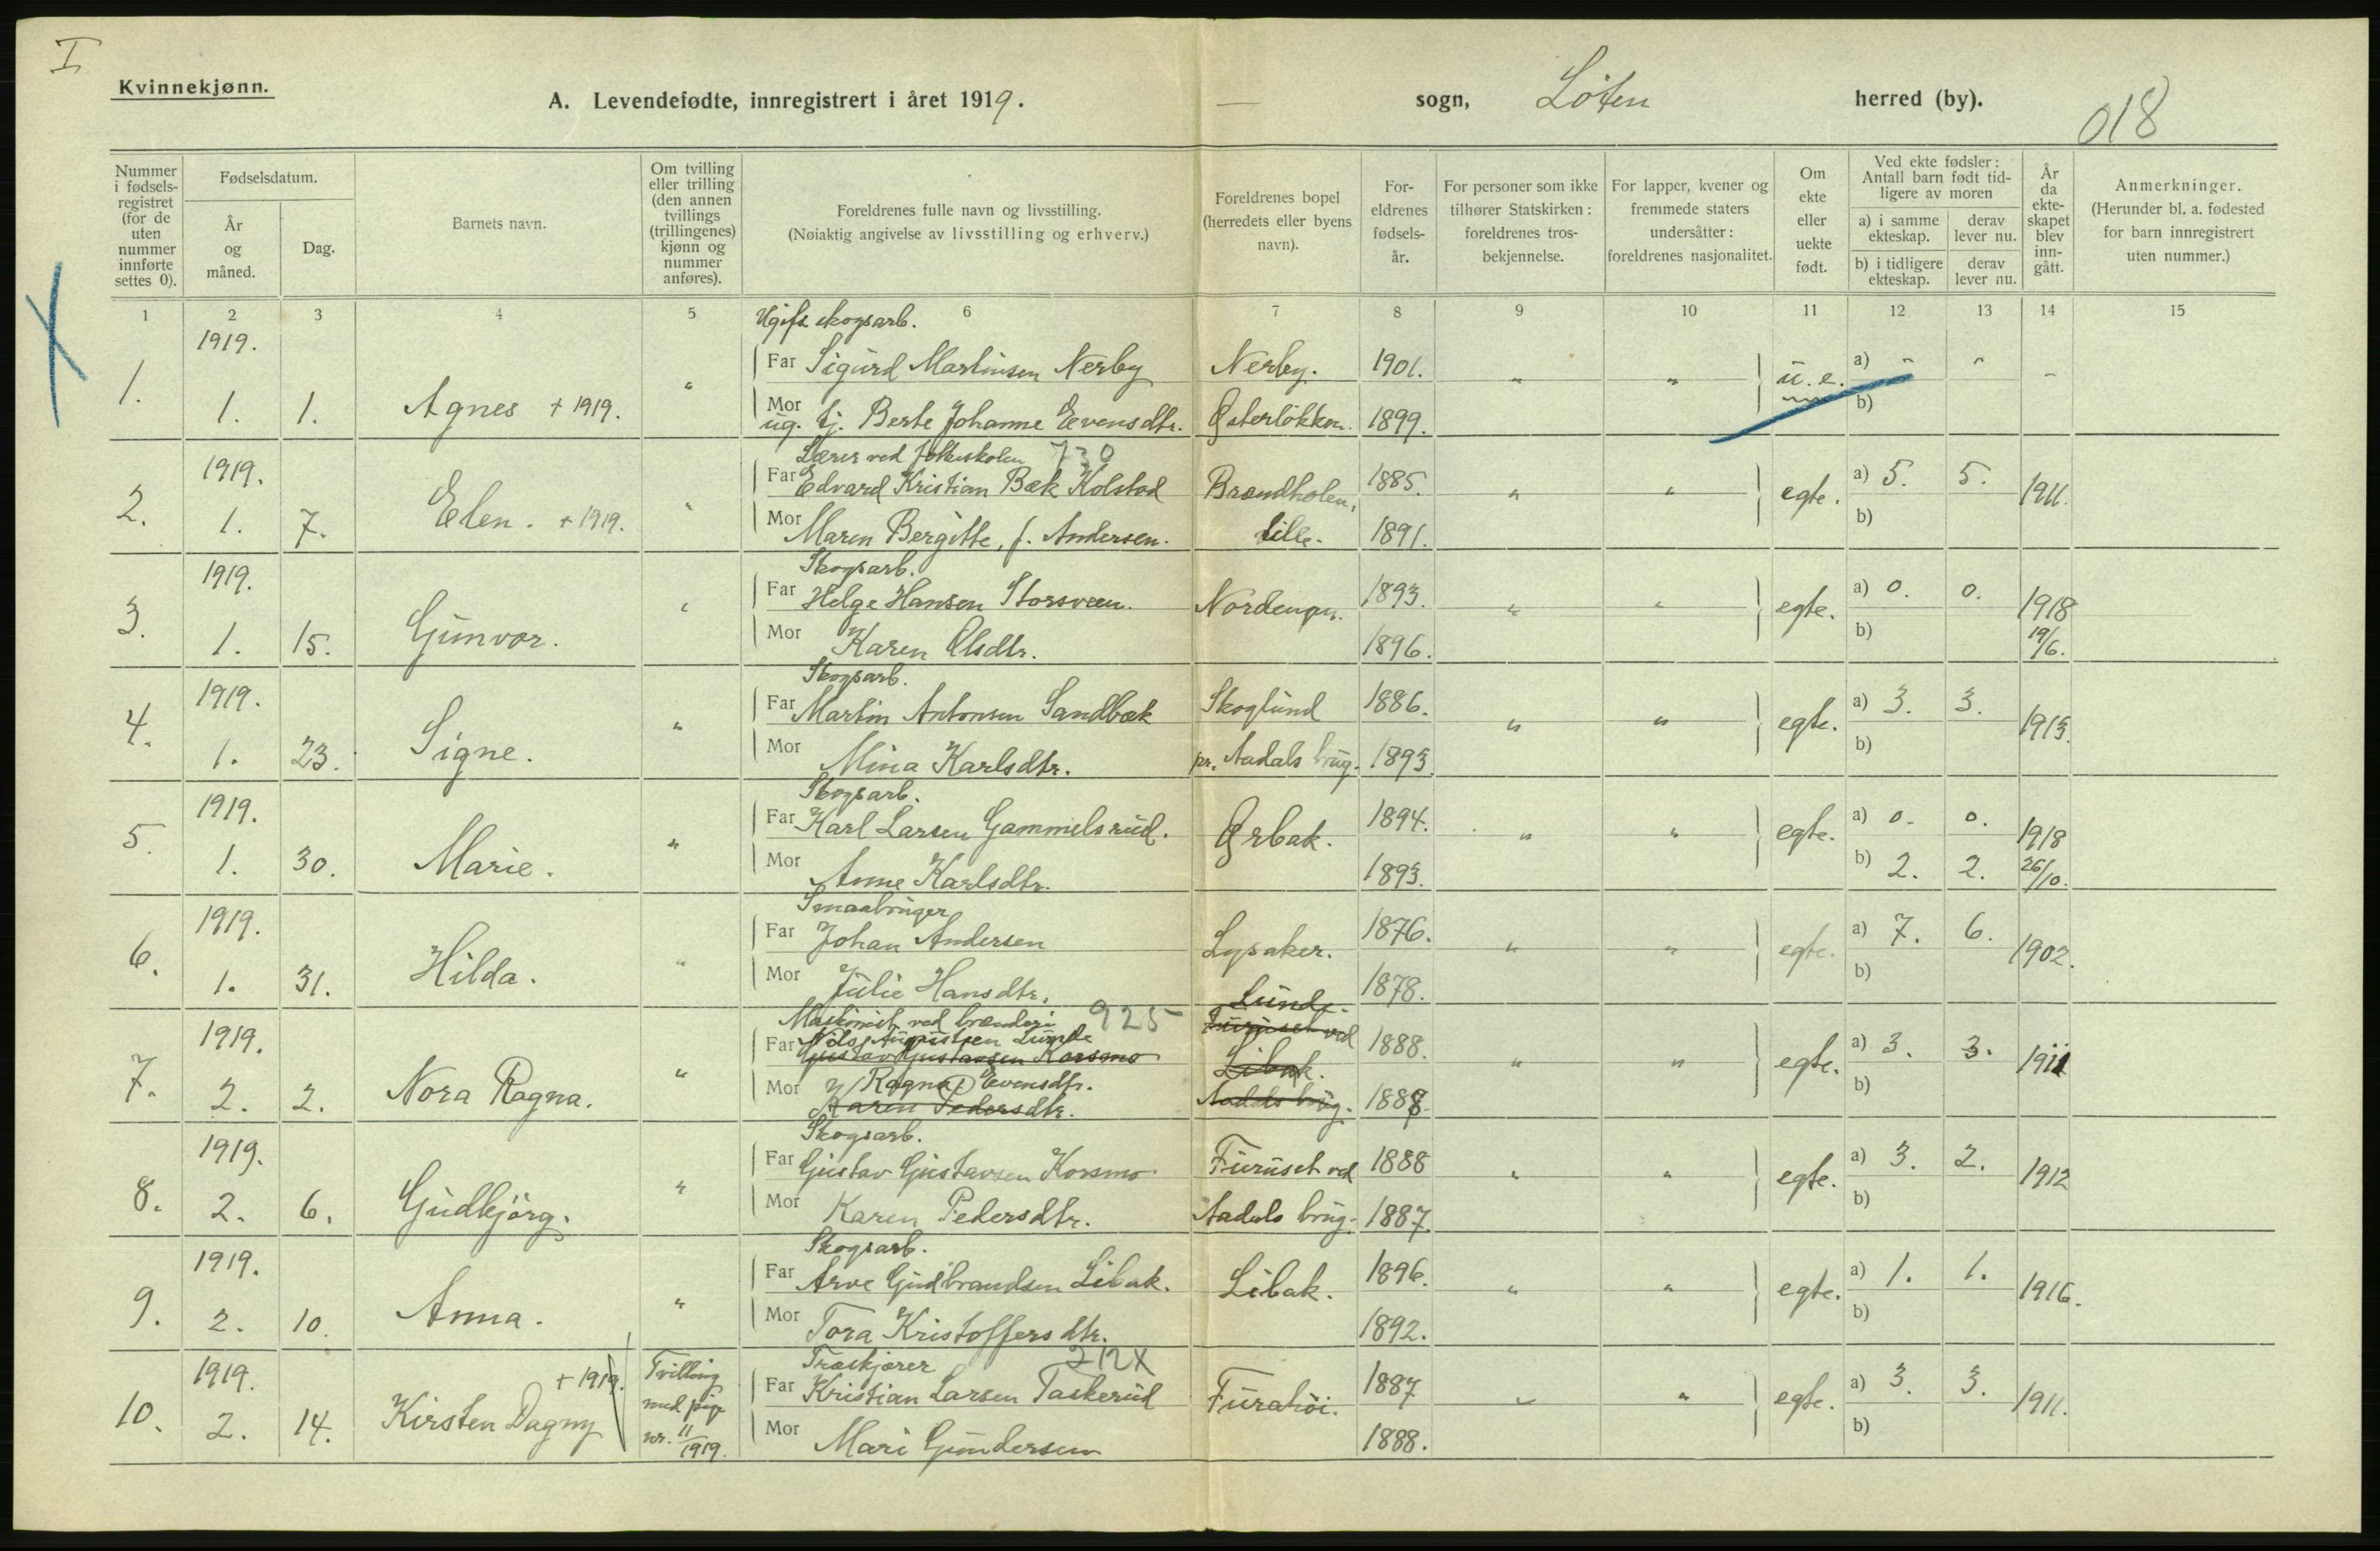 I
Kvinnekjønn.
A. Levendefødte, innregistrert i året 1919. — sogn, Löten herred (by).
018
Nummer i fødsels-registret (for de uten nummer innførte settes 0).
Fødselsdatum.
År og måned.
Dag.
Barnets navn.
Om tvilling eller trilling (den annen tvillings (trillingenes) kjønn og nummer anføres).
Foreldrenes fulle navn og livsstilling.
(Nøiaktig angivelse av livsstilling og erhverv.)
Foreldrenes bopel (herredets eller byens navn).
For-eldrenes fødsels-år.
For personer som ikke tilhører Statskirken: foreldrenes tros-bekjennelse.
For lapper, kvener og fremmede staters undersåtter: foreldrenes nasjonalitet.
Om ekte eller uekte født.
Ved ekte fødsler: Antall barn født tid-ligere av moren
a) i samme ekteskap.
derav lever nu.
b) i tidligere ekteskap.
derav lever nu.
År da ekte-skapet blev inn-gått.
Anmerkninger.
(Herunder bl. a. fødested for barn innregistrert uten nummer.)
1 2 3 4 5 6 7 8 9 10 11 12 13 14 15
Ugift skogsarb.
1919. Far Sigurd Martinsen Nerby Nerby. 1901. " " u. e. a) " " -
1. 1. 1. Agnes + 1919. " Mor ug. tj. Berte Johanne Evensdtr. Österlökken. 1899. b)
Lærer ved folkeskolen 730
1919. Far Edvard Kristian Bæk Kolstad Brændholen, 1885. " " egte. a) 5. 5. 1911.
2. 1. 7. Elen. + 1919. " Mor Maren Bergitte, f. Andersen. lille. 1891. b)
Skogsarb.
1919. Far Helge Hansen Storsveen. 1893. " " egte. a) 0. 0. 1918
3. 1. 15. Gunvor. " Mor Karen Olsdtr. 1896. b) 19/6.
Skogsarb.
1919. Far Martin Antonsen Sandbæk Skoglund 1886. " " egte. a) 3. 3. 1913.
4. 1. 23. Signe. " Mor Mina Karlsdtr. pr. Aadals brug. 1893. b)
Skogsarb.
1919. Far Karl Larsen Gammelsrud. Örbak. 1894. " " egte. a) 0. 0. 1918
5. 1. 30. Marie. " Mor Anne Karlsdtr. 1893. b) 2. 2. 26/10.
Smaabruger
1919. Far Johan Andersen Lysaker. 1876. " " egte. a) 7. 6. 1902.
6. 1. 31. Hilda. " Mor Julie Hansdtr. 1878. b)
Maskinist ved brænderi 925 Lunde.
Nils Augustsen Lunde Furuset ved
1919. Far Gustav Gustavsen Korsmo Libak. 1888. " " egte. a) 3. 3. 1911
7. 2. 2. Nora Ragna. " Mor Ragna Evensdtr. b)
Karen Pedersdtr. Aadals brug. 1888
Skogsarb.
1919. Far Gustav Gustavsen Korsmo Furuset ved 1888 " " egte. a) 3. 2. 1912
8. 2. 6. Gudbjörg. " Mor Karen Pedersdtr. Aadals brug. 1887. b)
Skogsarb.
1919. Far Arve Gudbrandsen Libak. Libak. 1896. " " egte. a) 1. 1. 1916.
9. 2. 10. Anna. " Mor Tora Kristoffersdtr. 1892. b)
Træskjærer 212X
1919. + 1919. Tvilling med pige nr. 11/1919. Far Kristian Larsen Taskerud Furahöi. 1887 " " egte. a) 3. 3. 1911.
10. 2. 14. Kirsten Dagny Mor Mari Gundersen 1888. b)